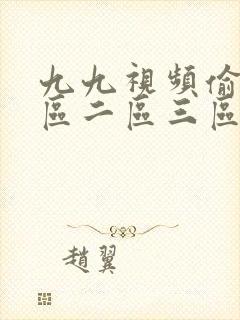 九九視頻偷
區二區三區
趙翼